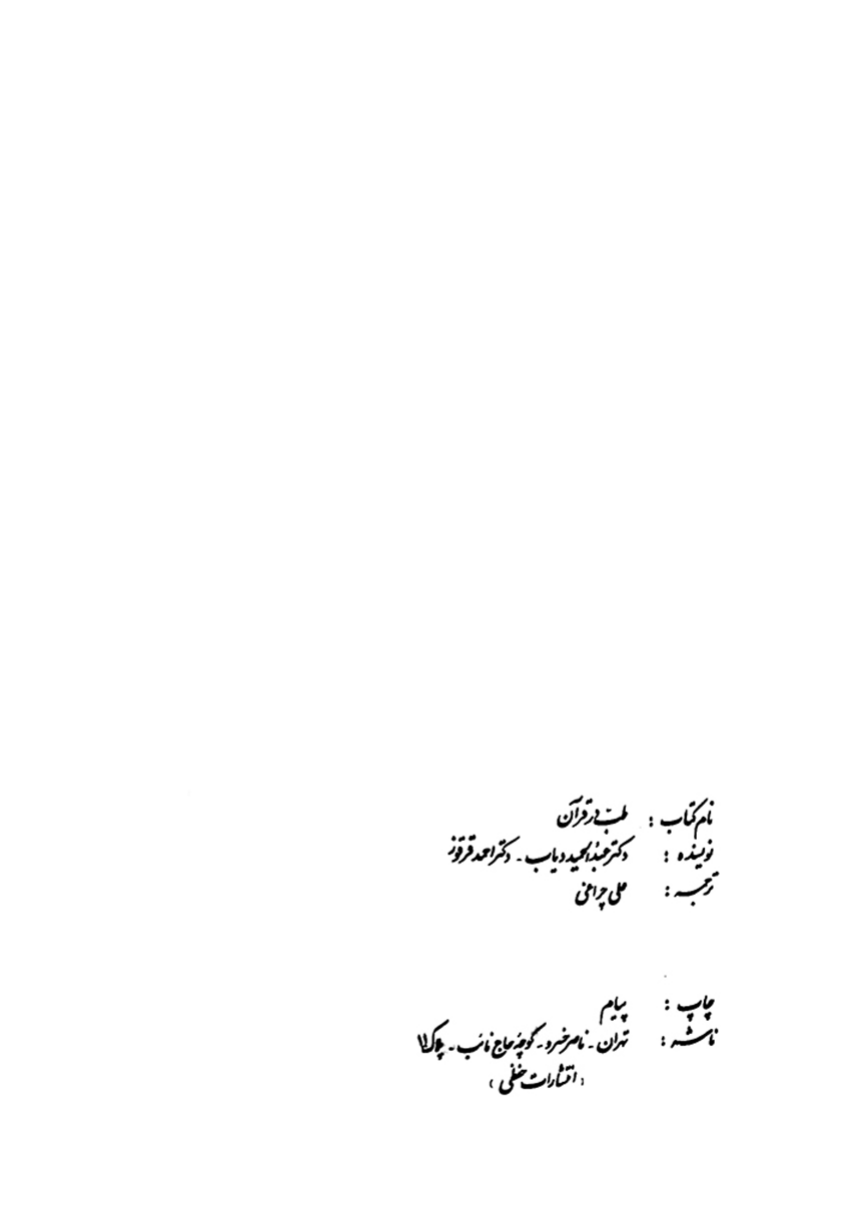 نام کتاب : طب در قرآن
نویسنده : دکتر عبدالحمید دیاب - دکتر احمد قرقوز
ترجمه : علی چراغی
چاپ : پیام
ناشر : تهران - ناصر خسرو - کوچه حاج نائب - پلاک ۱۱
(انتشارات حفظی)